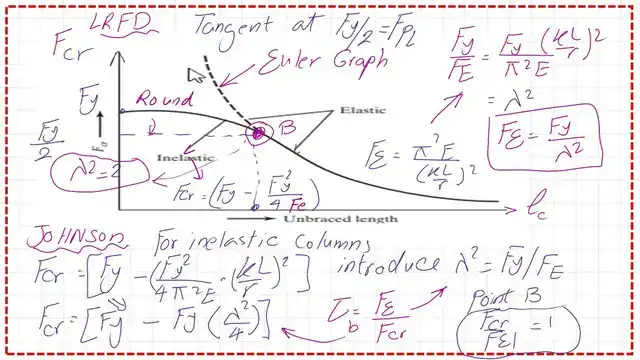 LRFD
Tangent at Fy/2 = FPL
Fcr
Euler Graph
Fy/FE = Fy/π²E (KL/r)²
= λ²
FE = Fy/λ²
Fy
Round
B
Elastic
Fy/2
Fa
Inelastic
λ²=2
Fcr = (Fy - Fy²/4Fe)
FE = π²E/(KL/r)²
Unbraced length
lc
JOHNSON
For inelastic Columns
Fcr = [Fy - (Fy²/4π²E · (KL/r)²]
introduce λ² = Fy/FE
Fcr = [Fy - Fy (λ²/4)]
τb = FE/Fcr
Point B
Fcr/FE = 1